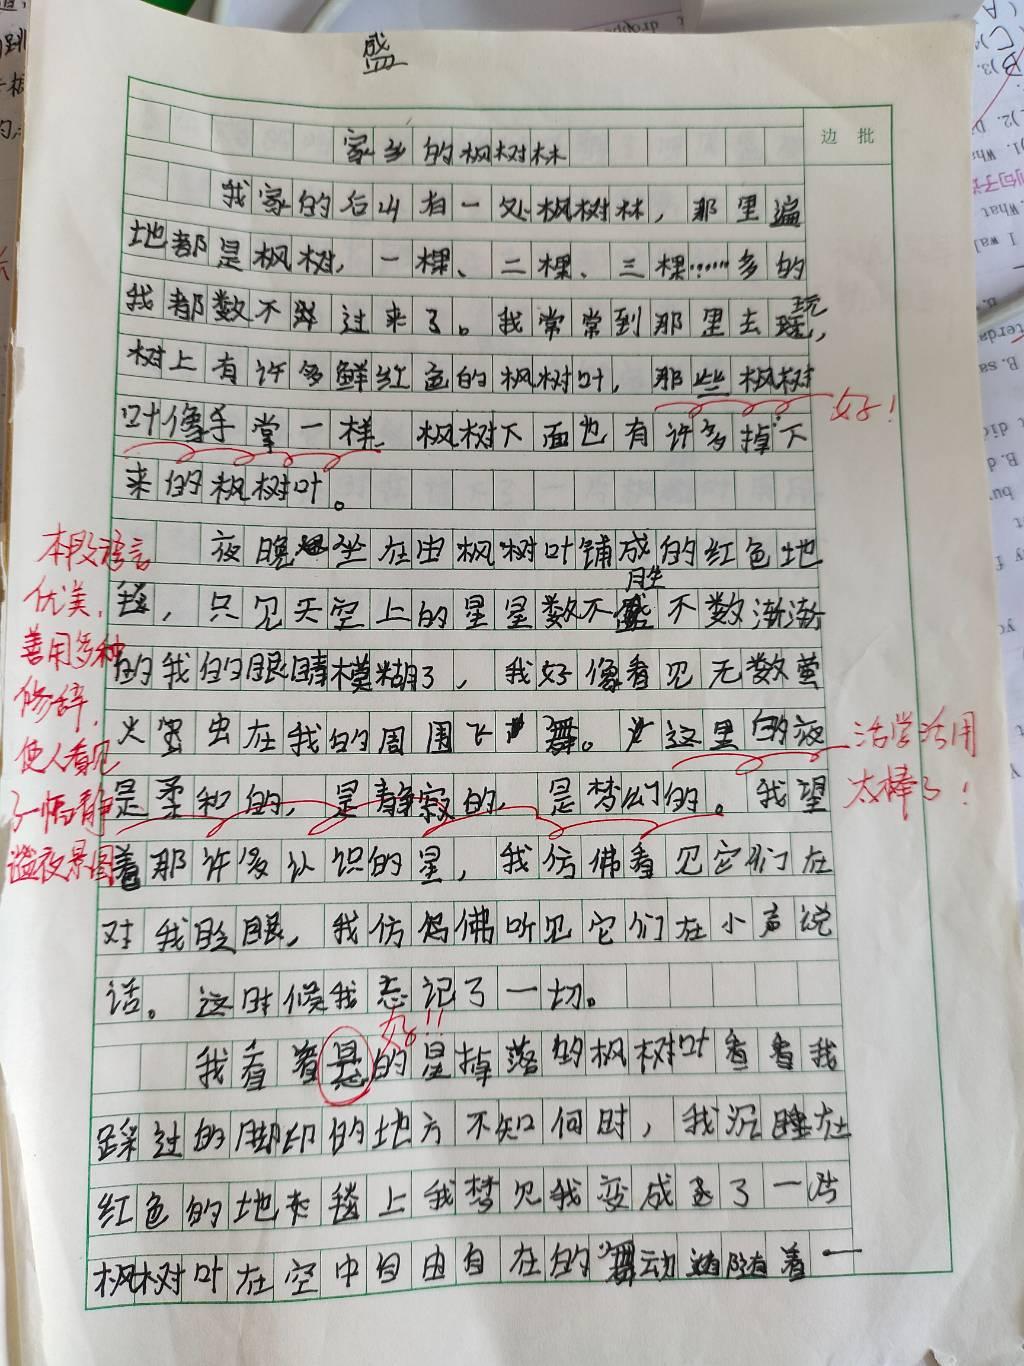 盛
边批
家乡的枫树林
我家的后山有一处枫树林，那里遍
地都是枫树，一棵、二棵、三棵……多的
我都数不过来了。我常常到那里去玩，
树上有许多鲜红色的枫树叶，那些枫树
好！
叶像手掌一样。枫树下面也有许多掉下
来的枫树叶。
夜晚坐在由枫树叶铺成的红色地
毯，只见天空上的星星数不胜不数渐渐
的我的眼睛模糊了，我好像看见无数萤
火虫在我的周围飞舞。这里的夜
是柔和的，是静寂的，是梦幻的。我望
着那许多认识的星，我仿佛看见它们在
对我眨眼，我仿佛听见它们在小声说
话。这时候我忘记了一切。
本段语言
优美，
善用多种
修辞，
使人看见
了一幅静
谧夜景图
活学活用
太棒了！
好！！
我看着悬的星掉落的枫树叶看看我
踩过的脚印的地方不知何时，我沉睡在
红色的地毯上我梦见我变成了一片
枫树叶在空中自由自在的舞动随着一